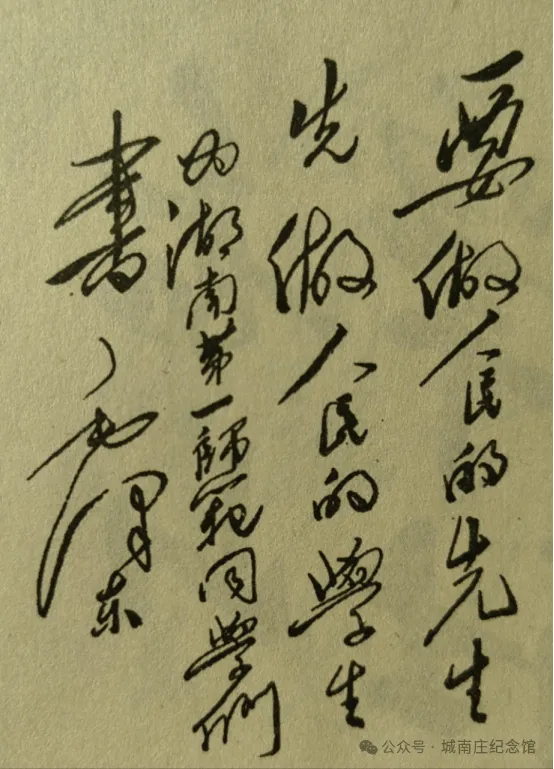 要做人民的先生
先做人民的學生
为湖南第一師范同學們
書 毛澤东
公众号·城南庄纪念馆